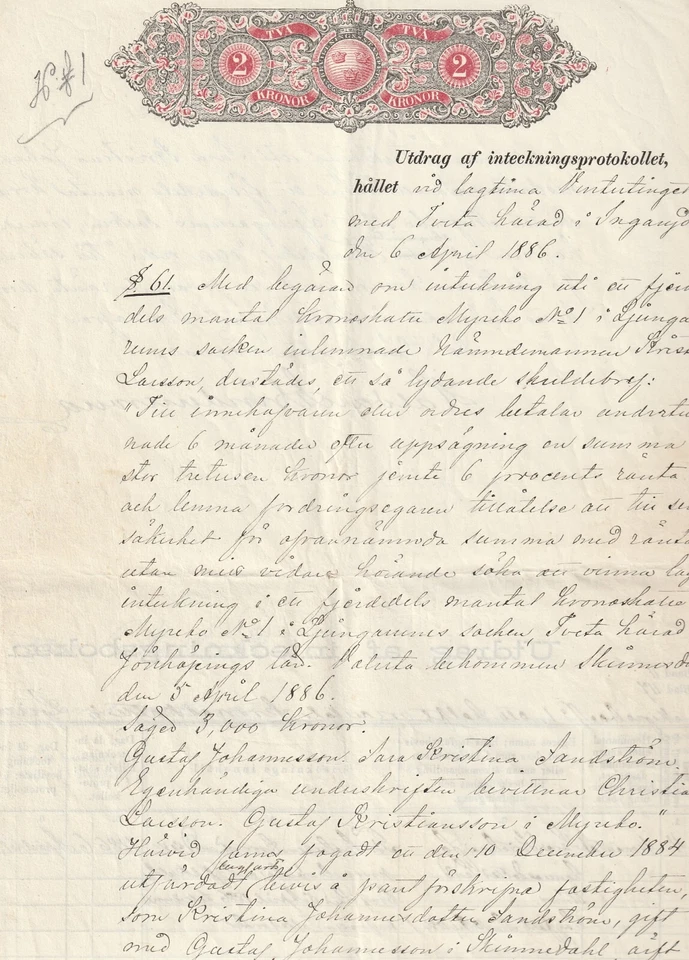 TVÅ TVÅ
2 2
KRONOR KRONOR
Utdrag af inteckningsprotokollet,
hållet vid lagtima Vintertinget
med Tveta härad i Ingaryd
den 6 April 1886.
§ 61. Med begäran om inteckning uti ett fjer
dels mantal kronoskatte Myrebo No 1 i Ljunga
rums socken inlemnade Nämndemannen
Larsson, derstädes, ett så lydande skuldebref:
"Till innehafvaren eller ordres betalar
6 månader efter uppsägning en summa
stor tretusen kronor jemte 6 procents ränta
och lemna fordringsegaren tillåtelse att till
säkerhet för ofvannämnda summa med ränta
utan vidare hörande söka att vinna lag
inteckning i ett fjerdedels mantal kronoskatte
Myrebo No 1 i Ljungarums socken, Tveta härad
Jönköpings län. Valuta bekommen
den 5 April 1886.
Säger 3,000 Kronor.
Gustaf Johannesson. Sara Kristina Sandström.
Egenhändiga underskriften bevittnar
Larsson. Gustaf Kristiansson i Myrebo."
Härvid fanns fogadt ett den 10 December 1884
utfärdadt bevis å pantförskrifne fastigheten,
som Kristina Johannesdotter Sandström, gift
med Gustaf Johannesson i